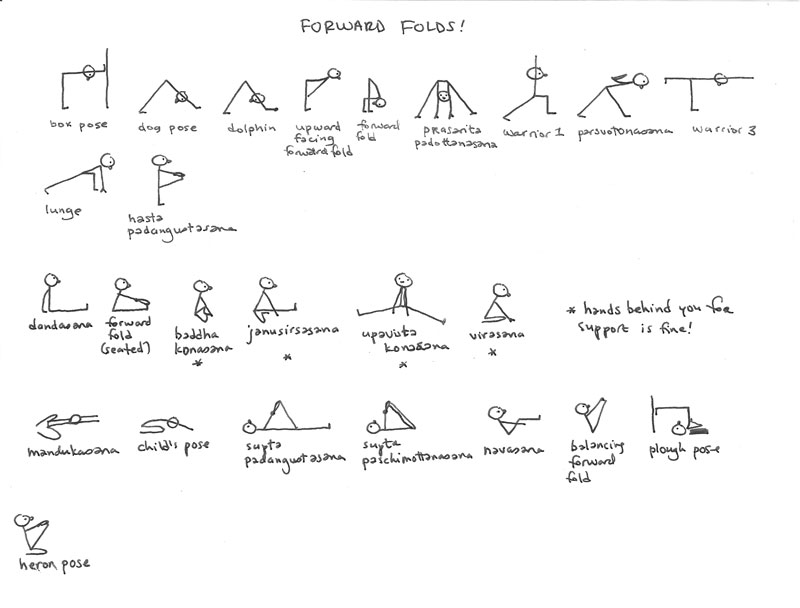 FORWARD FOLDS!
box pose
dog pose
dolphin
upward
facing
forward fold
forward
fold
prasarita
padottanasana
warrior 1
parsvotonasana
warrior 3
lunge
hasta
padangustasana
dandasana
forward
fold
(seated)
baddha
konasana
*
janusirsasana
*
upavista
konasana
*
virasana
*
* hands behind you for
support is fine!
mandukasana
child's pose
supta
padangustasana
supta
paschimottanasana
navasana
balancing
forward
fold
plough pose
heron pose